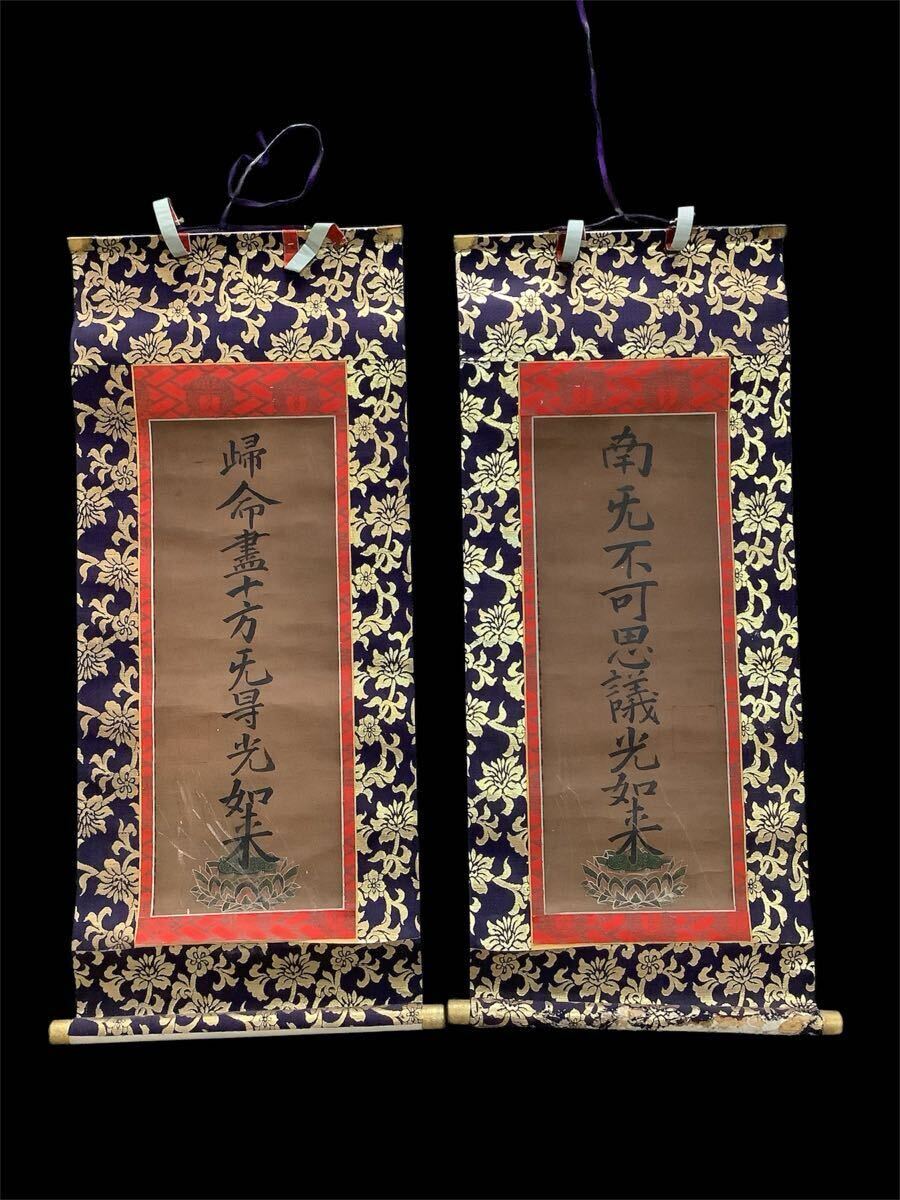 歸命盡十方旡㝵光如来
南旡不可思議光如来